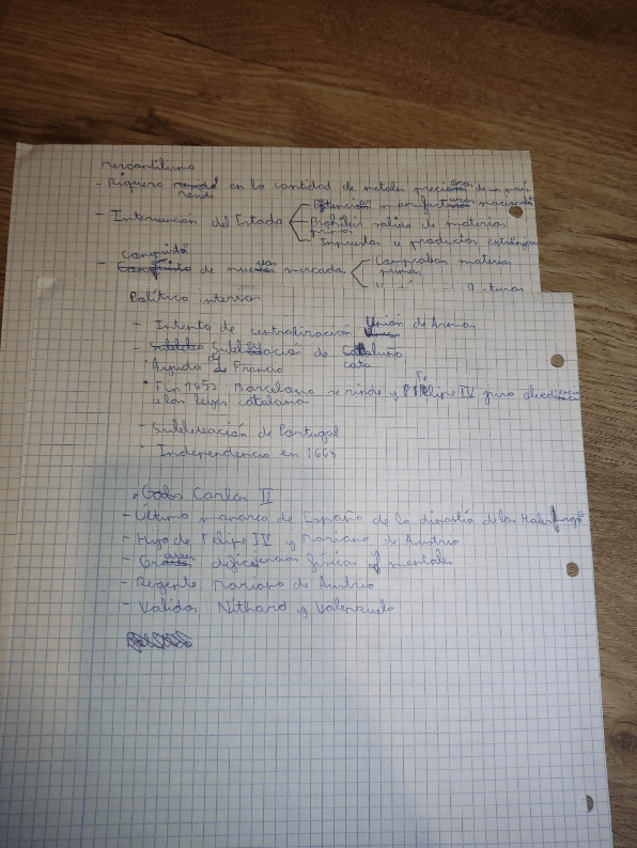 Mercantilismo
- Riquero reside en la cantidad de metales preciosos de un país
- Intervención del Estado
Potenciar manufacturas nacionales
Prohibir salida de materias
primas
Impuestos a productos extranjeros
Conquista
- de nuevos mercados
Compraban materias
primas
Política interior
- Intento de centralización Unión de Armas
- Sublevación de Cataluña
· Ayuda de Francia
· Fin 1652. Barcelona se rinde y Felipe IV jura obediencia
a las leyes catalanas
- Sublevación de Portugal
· Independencia en 1668
Carlos II
- Último monarca de España de la dinastía de los Habsburgo
- Hijo de Felipe IV y Mariana de Austria
- Graves deficiencias físicas y mentales
- Regente. Mariana de Austria
- Validos. Nithard y Valenzuela